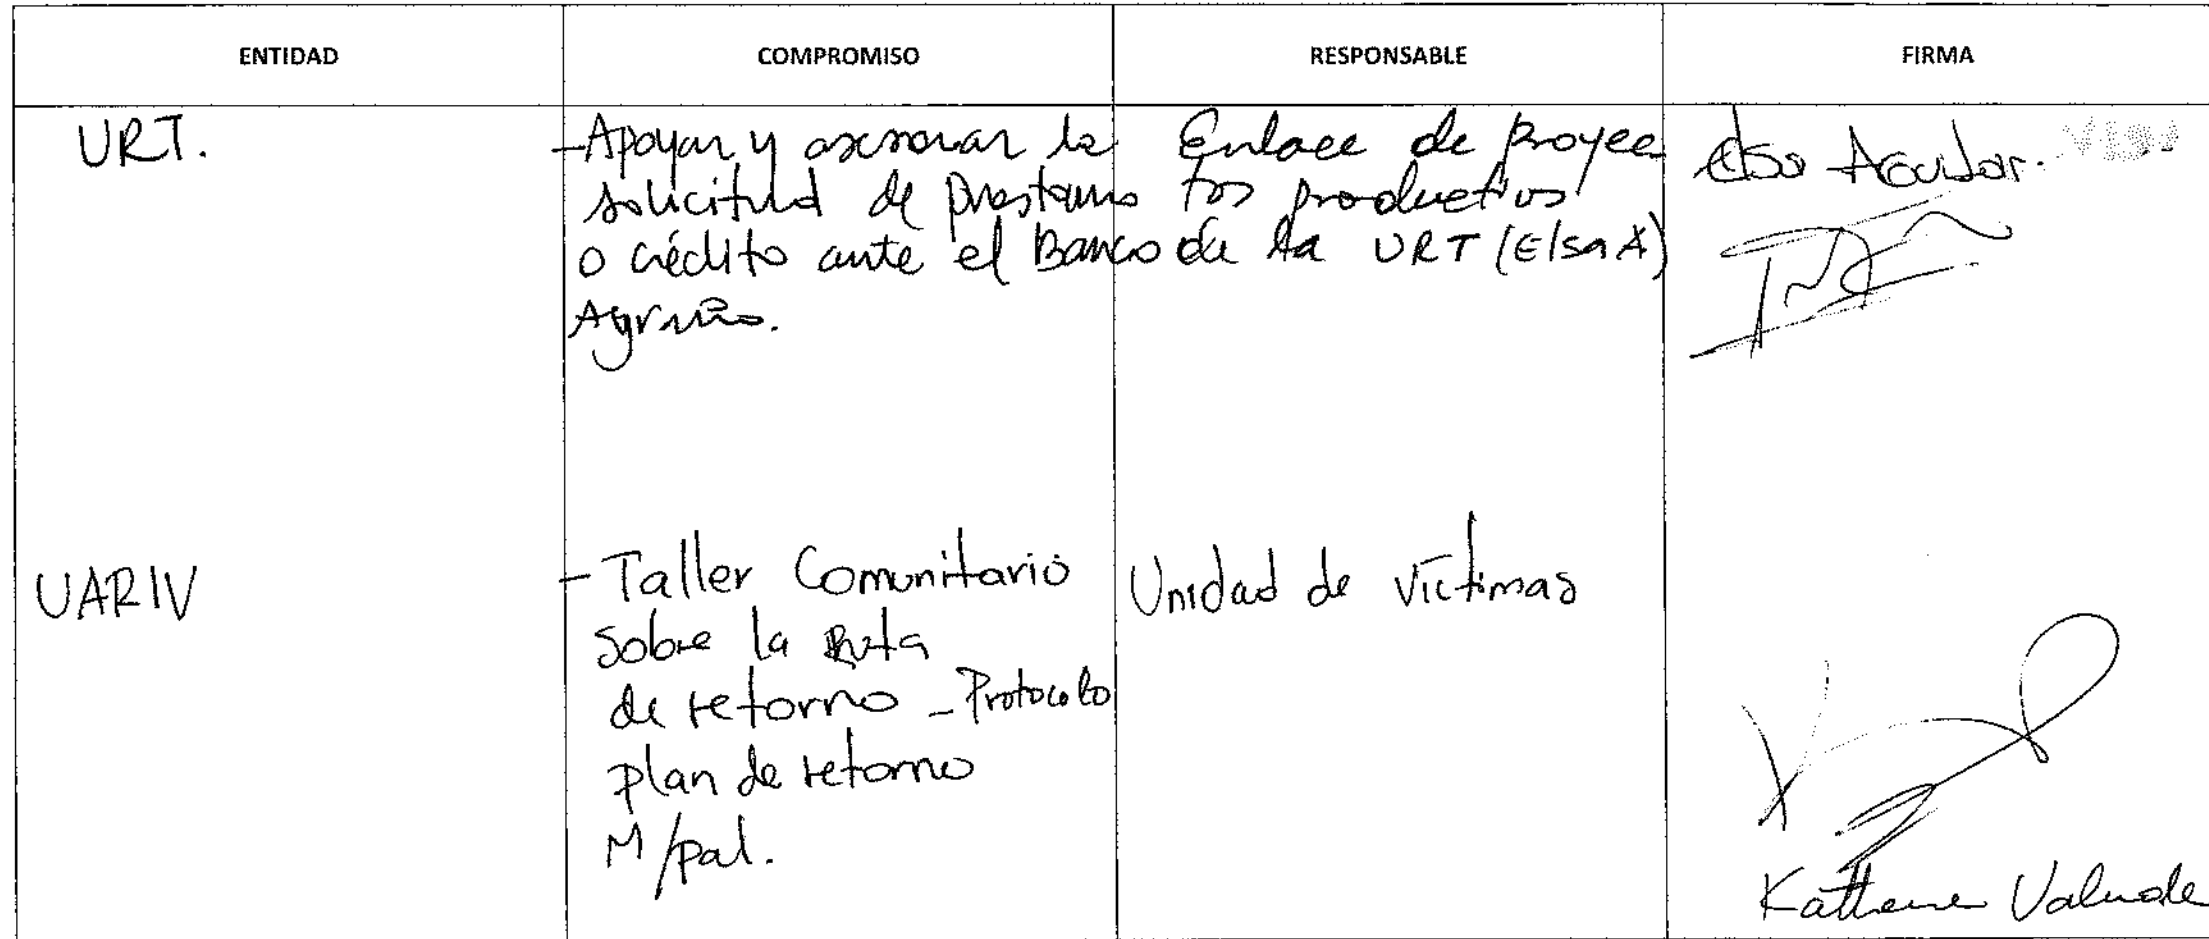 ENTIDAD COMPROMISO RESPONSABLE FIRMA
URT.
- Apoyar y asesorar la
solicitud de prestamo
o crédito ante el Banco
Agrario.
Enlace de Proyec
tos productivos
de la URT (Elsa A)
Elsa Aguilar.
UARIV
- Taller Comunitario
sobre la Ruta
de retorno - Protocolo
plan de retorno
M/pal.
Unidad de víctimas